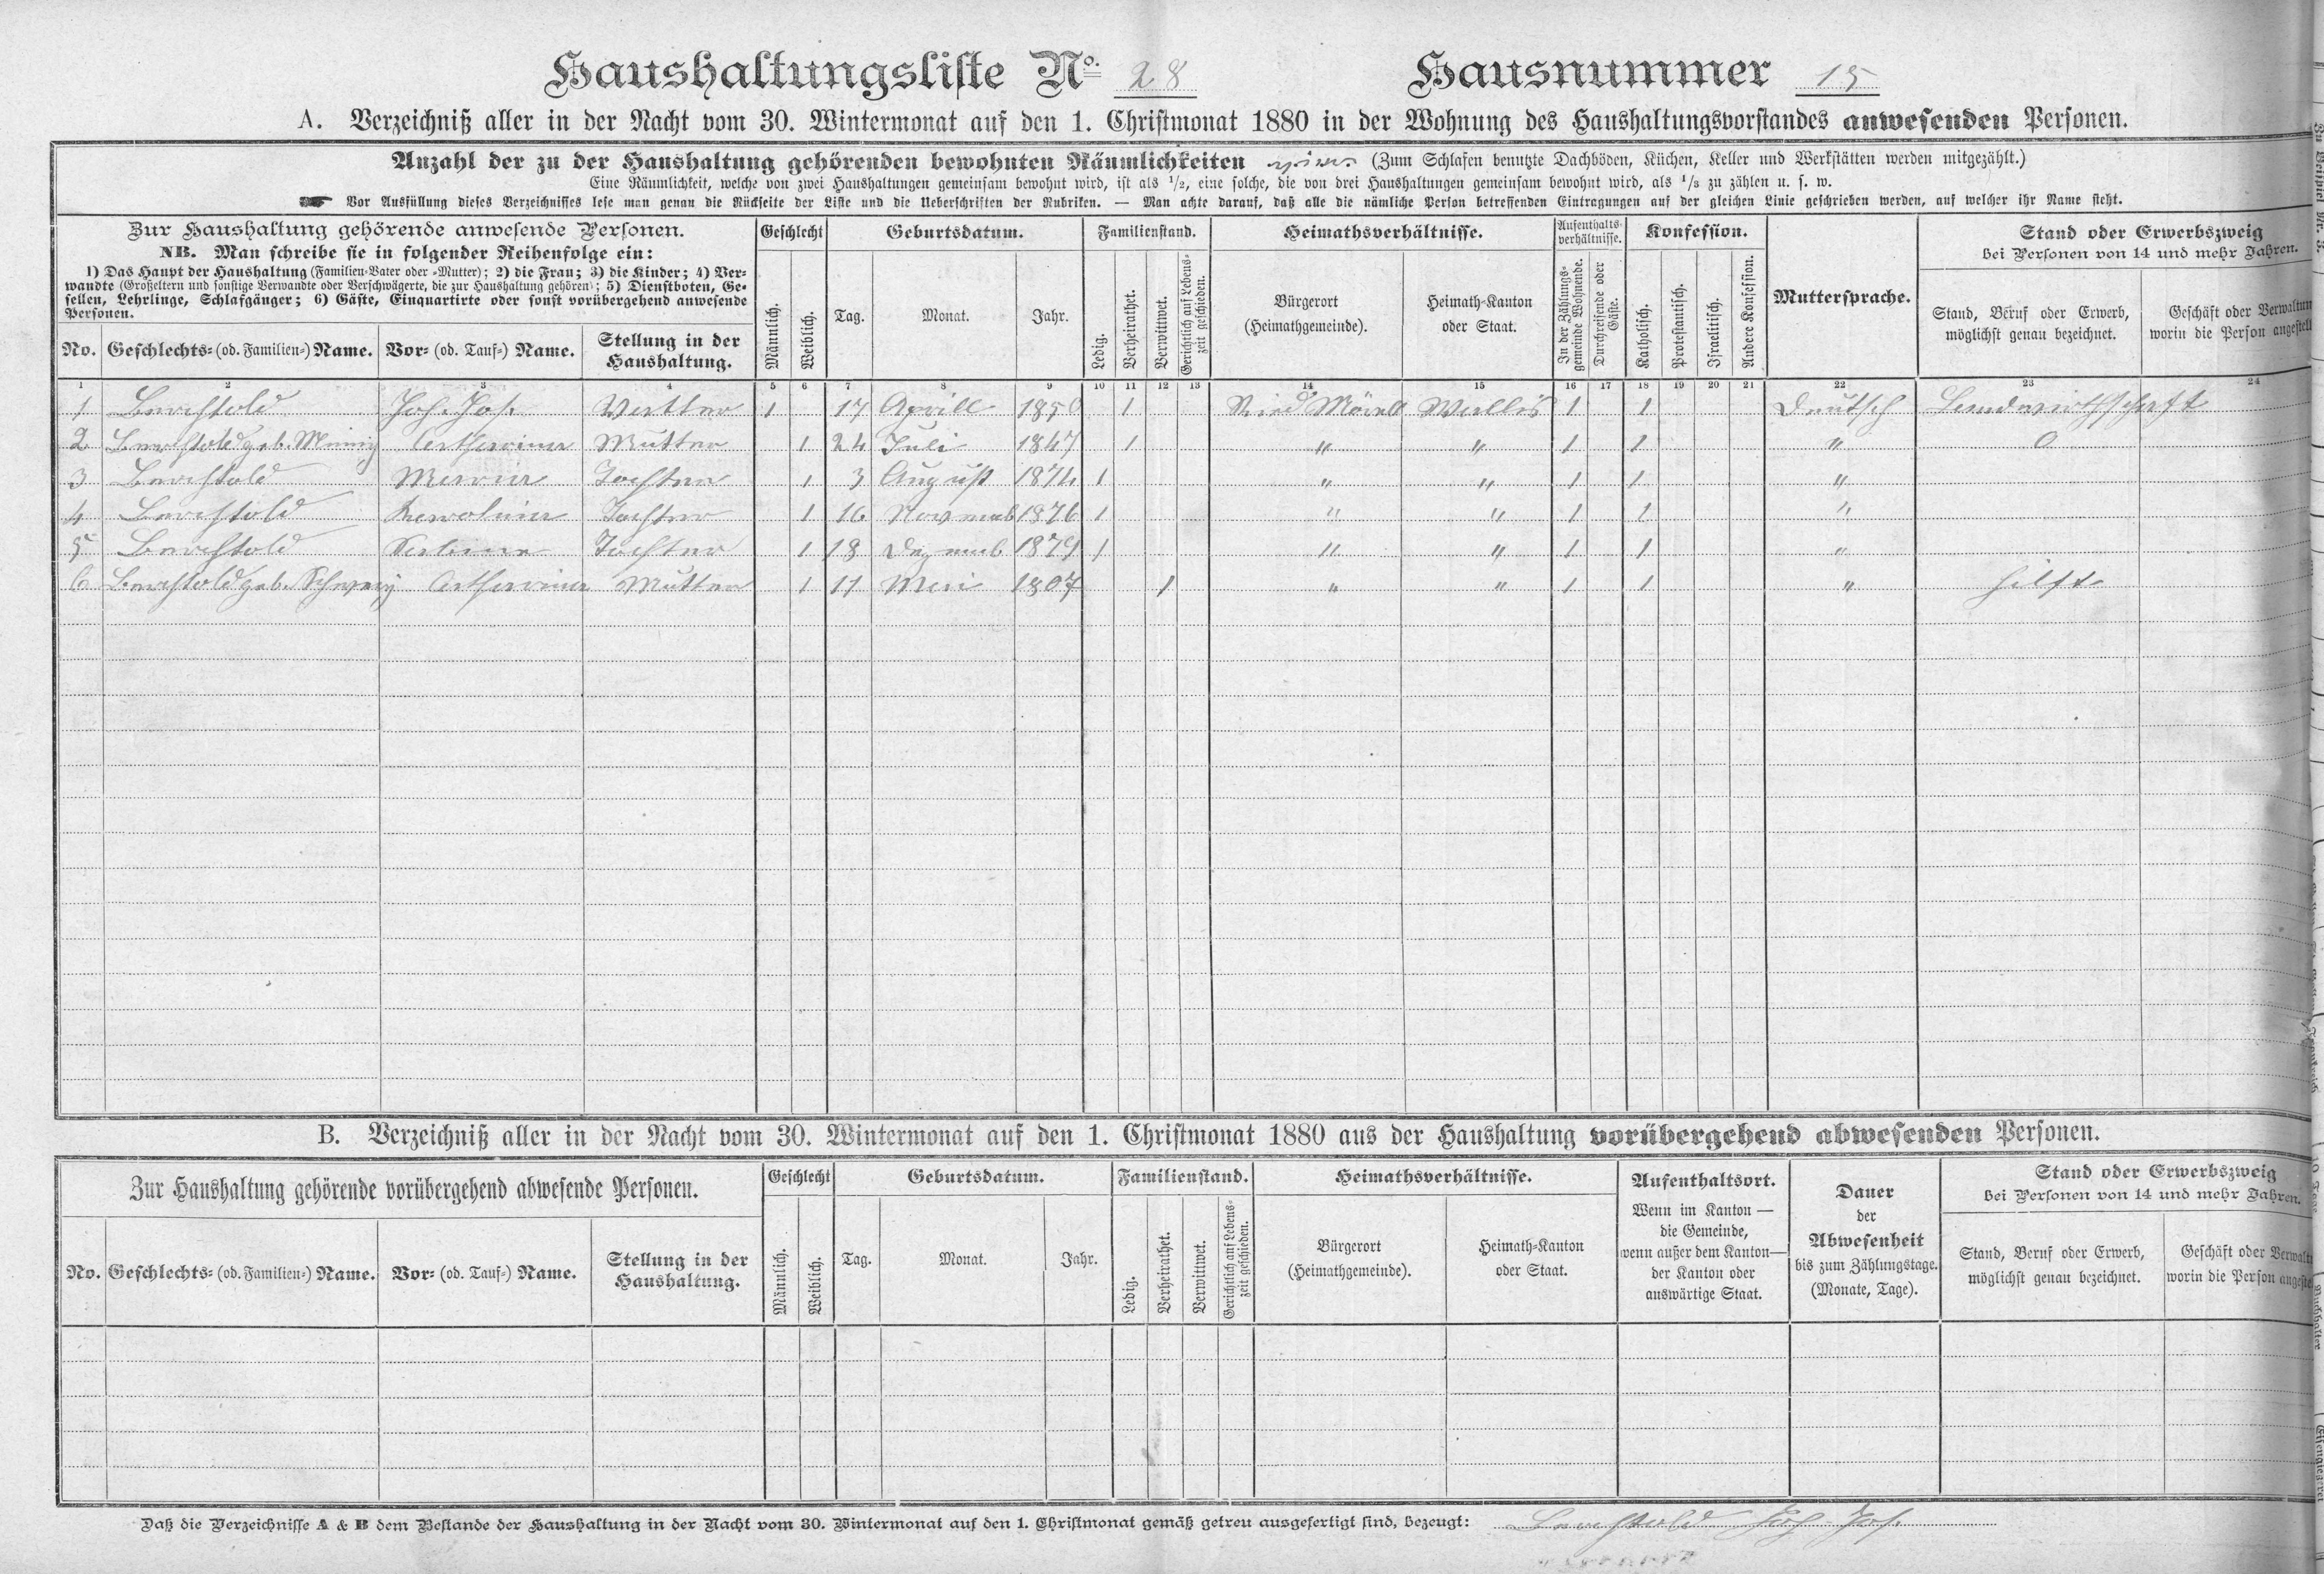 Haushaltungsliste No. 28 Hausnummer 15
A. Verzeichniß aller in der Nacht vom 30. Wintermonat auf den 1. Christmonat 1880 in der Wohnung des Haushaltungsvorstandes anwesenden Personen.
Anzahl der zu der Haushaltung gehörenden bewohnten Räumlichkeiten (Zum Schlafen benutzte Dachböden, Küchen, Keller und Werkstätten werden mitgezählt.)
Eine Räumlichkeit, welche von zwei Haushaltungen gemeinsam bewohnt wird, ist als 1/2, eine solche, die von drei Haushaltungen gemeinsam bewohnt wird, als 1/3 zu zählen u. s. w.
Vor Ausfüllung dieses Verzeichnisses lese man genau die Rückseite der Liste und die Ueberschriften der Rubriken. — Man achte darauf, daß alle die nämliche Person betreffenden Eintragungen auf der gleichen Linie geschrieben werden, auf welcher ihr Name steht.
Zur Haushaltung gehörende anwesende Personen.
NB. Man schreibe sie in folgender Reihenfolge ein:
1) Das Haupt der Haushaltung (Familien-Vater oder -Mutter); 2) die Frau; 3) die Kinder; 4) Ver-
wandte (Großeltern und sonstige Verwandte oder Verschwägerte, die zur Haushaltung gehören); 5) Dienstboten, Ge-
sellen, Lehrlinge, Schlafgänger; 6) Gäste, Einquartirte oder sonst vorübergehend anwesende
Personen.
No. Geschlechts- (od. Familien-) Name. Vor- (od. Tauf-) Name. Stellung in der
Haushaltung.
Geschlecht
Männlich.
Weiblich.
Geburtsdatum.
Tag. Monat. Jahr.
Familienstand.
Ledig.
Verheirathet.
Verwittwet.
Gerichtlich auf Lebens-
zeit geschieden.
Heimathsverhältnisse.
Bürgerort
(Heimathgemeinde).
Heimath-Kanton
oder Staat.
Aufenthalts-
verhältnisse.
In der Zählungs-
gemeinde Wohnende.
Durchreisende oder
Gäste.
Konfession.
Katholisch.
Protestantisch.
Israelitisch.
Andere Konfession.
Muttersprache.
Stand oder Erwerbszweig
bei Personen von 14 und mehr Jahren.
Stand, Beruf oder Erwerb,
möglichst genau bezeichnet.
Geschäft oder Verwaltun
worin die Person angestell
1 2 3 4 5 6 7 8 9 10 11 12 13 14 15 16 17 18 19 20 21 22 23 24
1 Berchtold Joh. Jos. Vatter 1 17 Aprill 1850 1 Ried Mörel Wallis 1 1 Deutsch Landwirthschaft
2 Berchtold geb. Catharina Mutter 1 24 Juli 1847 1 " " 1 1 " 0
3 Berchtold Maria Tochter 1 3 August 1874 1 " " 1 1 "
4 Berchtold Karolina Tochter 1 16 Novemb 1876 1 " " 1 1 "
5 Berchtold Sabina Tochter 1 18 Dezemb 1879 1 " " 1 1 "
6 Berchtold geb. Schwery Catharina Mutter 1 11 Mai 1807 1 " " 1 1 " hilft
B. Verzeichniß aller in der Nacht vom 30. Wintermonat auf den 1. Christmonat 1880 aus der Haushaltung vorübergehend abwesenden Personen.
Zur Haushaltung gehörende vorübergehend abwesende Personen.
No. Geschlechts- (od. Familien-) Name. Vor- (od. Tauf-) Name. Stellung in der
Haushaltung.
Geschlecht
Männlich.
Weiblich.
Geburtsdatum.
Tag. Monat. Jahr.
Familienstand.
Ledig.
Verheirathet.
Verwittwet.
Gerichtlich auf Lebens-
zeit geschieden.
Heimathsverhältnisse.
Bürgerort
(Heimathgemeinde).
Heimath-Kanton
oder Staat.
Aufenthaltsort.
Wenn im Kanton —
die Gemeinde,
wenn außer dem Kanton —
der Kanton oder
auswärtige Staat.
Dauer
der
Abwesenheit
bis zum Zählungstage.
(Monate, Tage).
Stand oder Erwerbszweig
bei Personen von 14 und mehr Jahren.
Stand, Beruf oder Erwerb,
möglichst genau bezeichnet.
Geschäft oder Verwaltu
worin die Person angeste
Daß die Verzeichnisse A & B dem Bestande der Haushaltung in der Nacht vom 30. Wintermonat auf den 1. Christmonat gemäß getreu ausgefertigt sind, bezeugt: Berchtold Joh Jos.